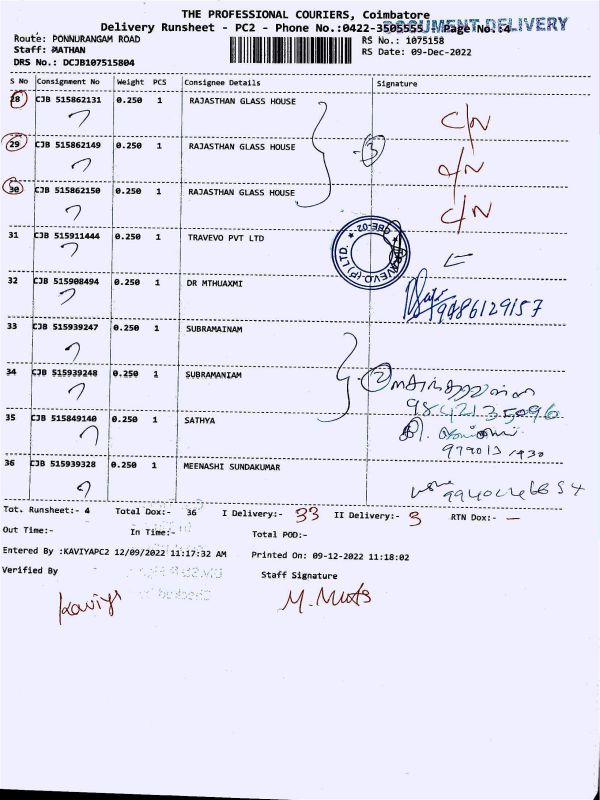 THE PROFESSIONAL COURIERS, Coimbatore
DOCUMENT DELIVERY
Delivery Runsheet - PC2 - Phone No.:0422-3505555 Page No.:4
Route: PONNURANGAM ROAD
RS No.: 1075158
Staff: MATHAN
RS Date: 09-Dec-2022
DRS No.: DCJB107515804
S No Consignment No Weight PCS Consignee Details Signature
28 CJB 515862131 0.250 1 RAJASTHAN GLASS HOUSE C/N
29 CJB 515862149 0.250 1 RAJASTHAN GLASS HOUSE 3 C/N
30 CJB 515862150 0.250 1 RAJASTHAN GLASS HOUSE C/N
31 CJB 515911444 0.250 1 TRAVEVO PVT LTD
TRAVEVO (P) LTD. CBE-02
32 CJB 515908494 0.250 1 DR MTHUAXMI
9486129157
33 CJB 515939247 0.250 1 SUBRAMAINAM
34 CJB 515939248 0.250 1 SUBRAMANIAM
2
9842135096
35 CJB 515849140 0.250 1 SATHYA
36 CJB 515939328 0.250 1 MEENASHI SUNDAKUMAR
Tot. Runsheet:- 4 Total Dox:- 36 I Delivery:- 33 II Delivery:- 3 RTN Dox:- —
Out Time:- In Time:- Total POD:-
Entered By :KAVIYAPC2 12/09/2022 11:17:32 AM Printed On: 09-12-2022 11:18:02
Verified By Staff Signature
Kaviya